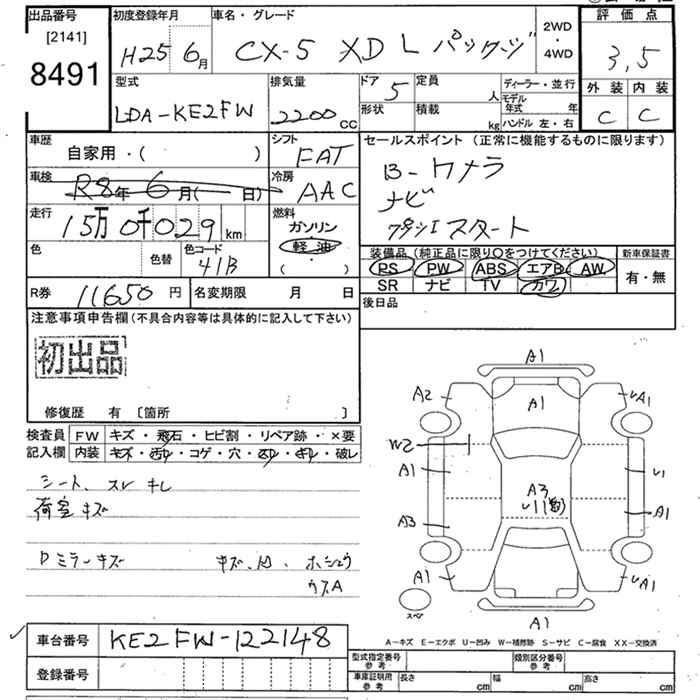 出品番号
[2141]
8491
初度登録年月
H25 6月
車名・グレード
CX-5 XD L パッケージ
2WD
・
4WD
評価点
3,5
外装 内装
C C
型式
LDA-KE2FW
排気量
2200cc
ドア 5
形状
定員 人
積載 kg
ディーラー・並行
モデル年式 年
ハンドル 左・右
車歴
自家用・( )
シフト
FAT
車検
R8年 6月( 日)
冷房
AAC
走行
15万 0千 029 km
燃料
ガソリン
軽油
( ・ )
色
色替
色コード
41B
セールスポイント (正常に機能するものに限ります)
B-カメラ
ナビ
プッシュスタート
装備品 (純正品に限り○をつけてください)
PS PW ABS エアB AW
SR ナビ TV カワ
新車保証書
有・無
R券 11650円
名変期限 月 日
後日品
注意事項申告欄 (不具合内容等は具体的に記入して下さい)
初出品
修復歴 有 [箇所 ]
検査員記入欄
FW キズ・飛石・ヒビ割・リペア跡・×要
内装 キズ・汚レ・コゲ・穴・スレ・キレ・破レ
シート、スレ キレ
荷室キズ
Dミラーキズ
キズ、凹、ホシュウ
ウスA
A1
A2
A1
UA1
W2
A1
A3
A3
U1
A1
A1
UA1
A1
スペア
A-キズ E-エクボ U-凹み W-補修跡 S-サビ C-腐食 XX-交換済
車台番号 KE2FW-122148
登録番号
型式指定番号 参考
類別区分番号 参考
車庫証明用 参考
長さ cm
幅 cm
高さ cm